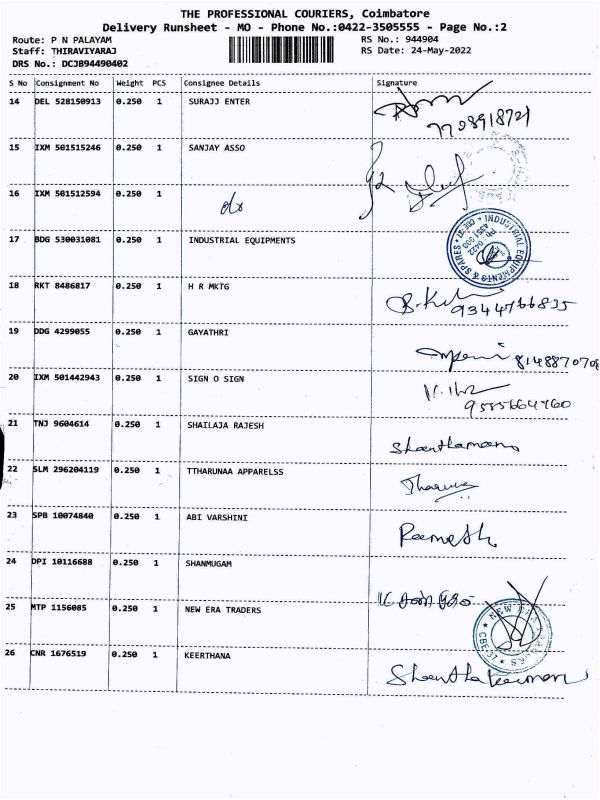 THE PROFESSIONAL COURIERS, Coimbatore
Delivery Runsheet - MO - Phone No.:0422-3505555 - Page No.:2
Route: P N PALAYAM RS No.: 944904
Staff: THIRAVIYARAJ RS Date: 24-May-2022
DRS No.: DCJB94490402
S No Consignment No Weight PCS Consignee Details Signature
14 DEL 528150913 0.250 1 SURAJJ ENTER
7708918721
15 IXM 501515246 0.250 1 SANJAY ASSO
16 IXM 501512594 0.250 1 do
17 BDG 530031081 0.250 1 INDUSTRIAL EQUIPMENTS
INDUSTRIAL EQUIPMENTS & SPARES
18 RKT 8486817 0.250 1 H R MKTG
9344766835
19 DDG 4299055 0.250 1 GAYATHRI
8148870708
20 IXM 501442943 0.250 1 SIGN O SIGN
9585664760
21 TNJ 9604614 0.250 1 SHAILAJA RAJESH
22 SLM 296204119 0.250 1 TTHARUNAA APPARELSS
23 SPB 10074840 0.250 1 ABI VARSHINI
Ramesh
24 DPI 10116688 0.250 1 SHANMUGAM
25 MTP 1156085 0.250 1 NEW ERA TRADERS
NEW ERA TRADERS CBE-37
26 CNR 1676519 0.250 1 KEERTHANA